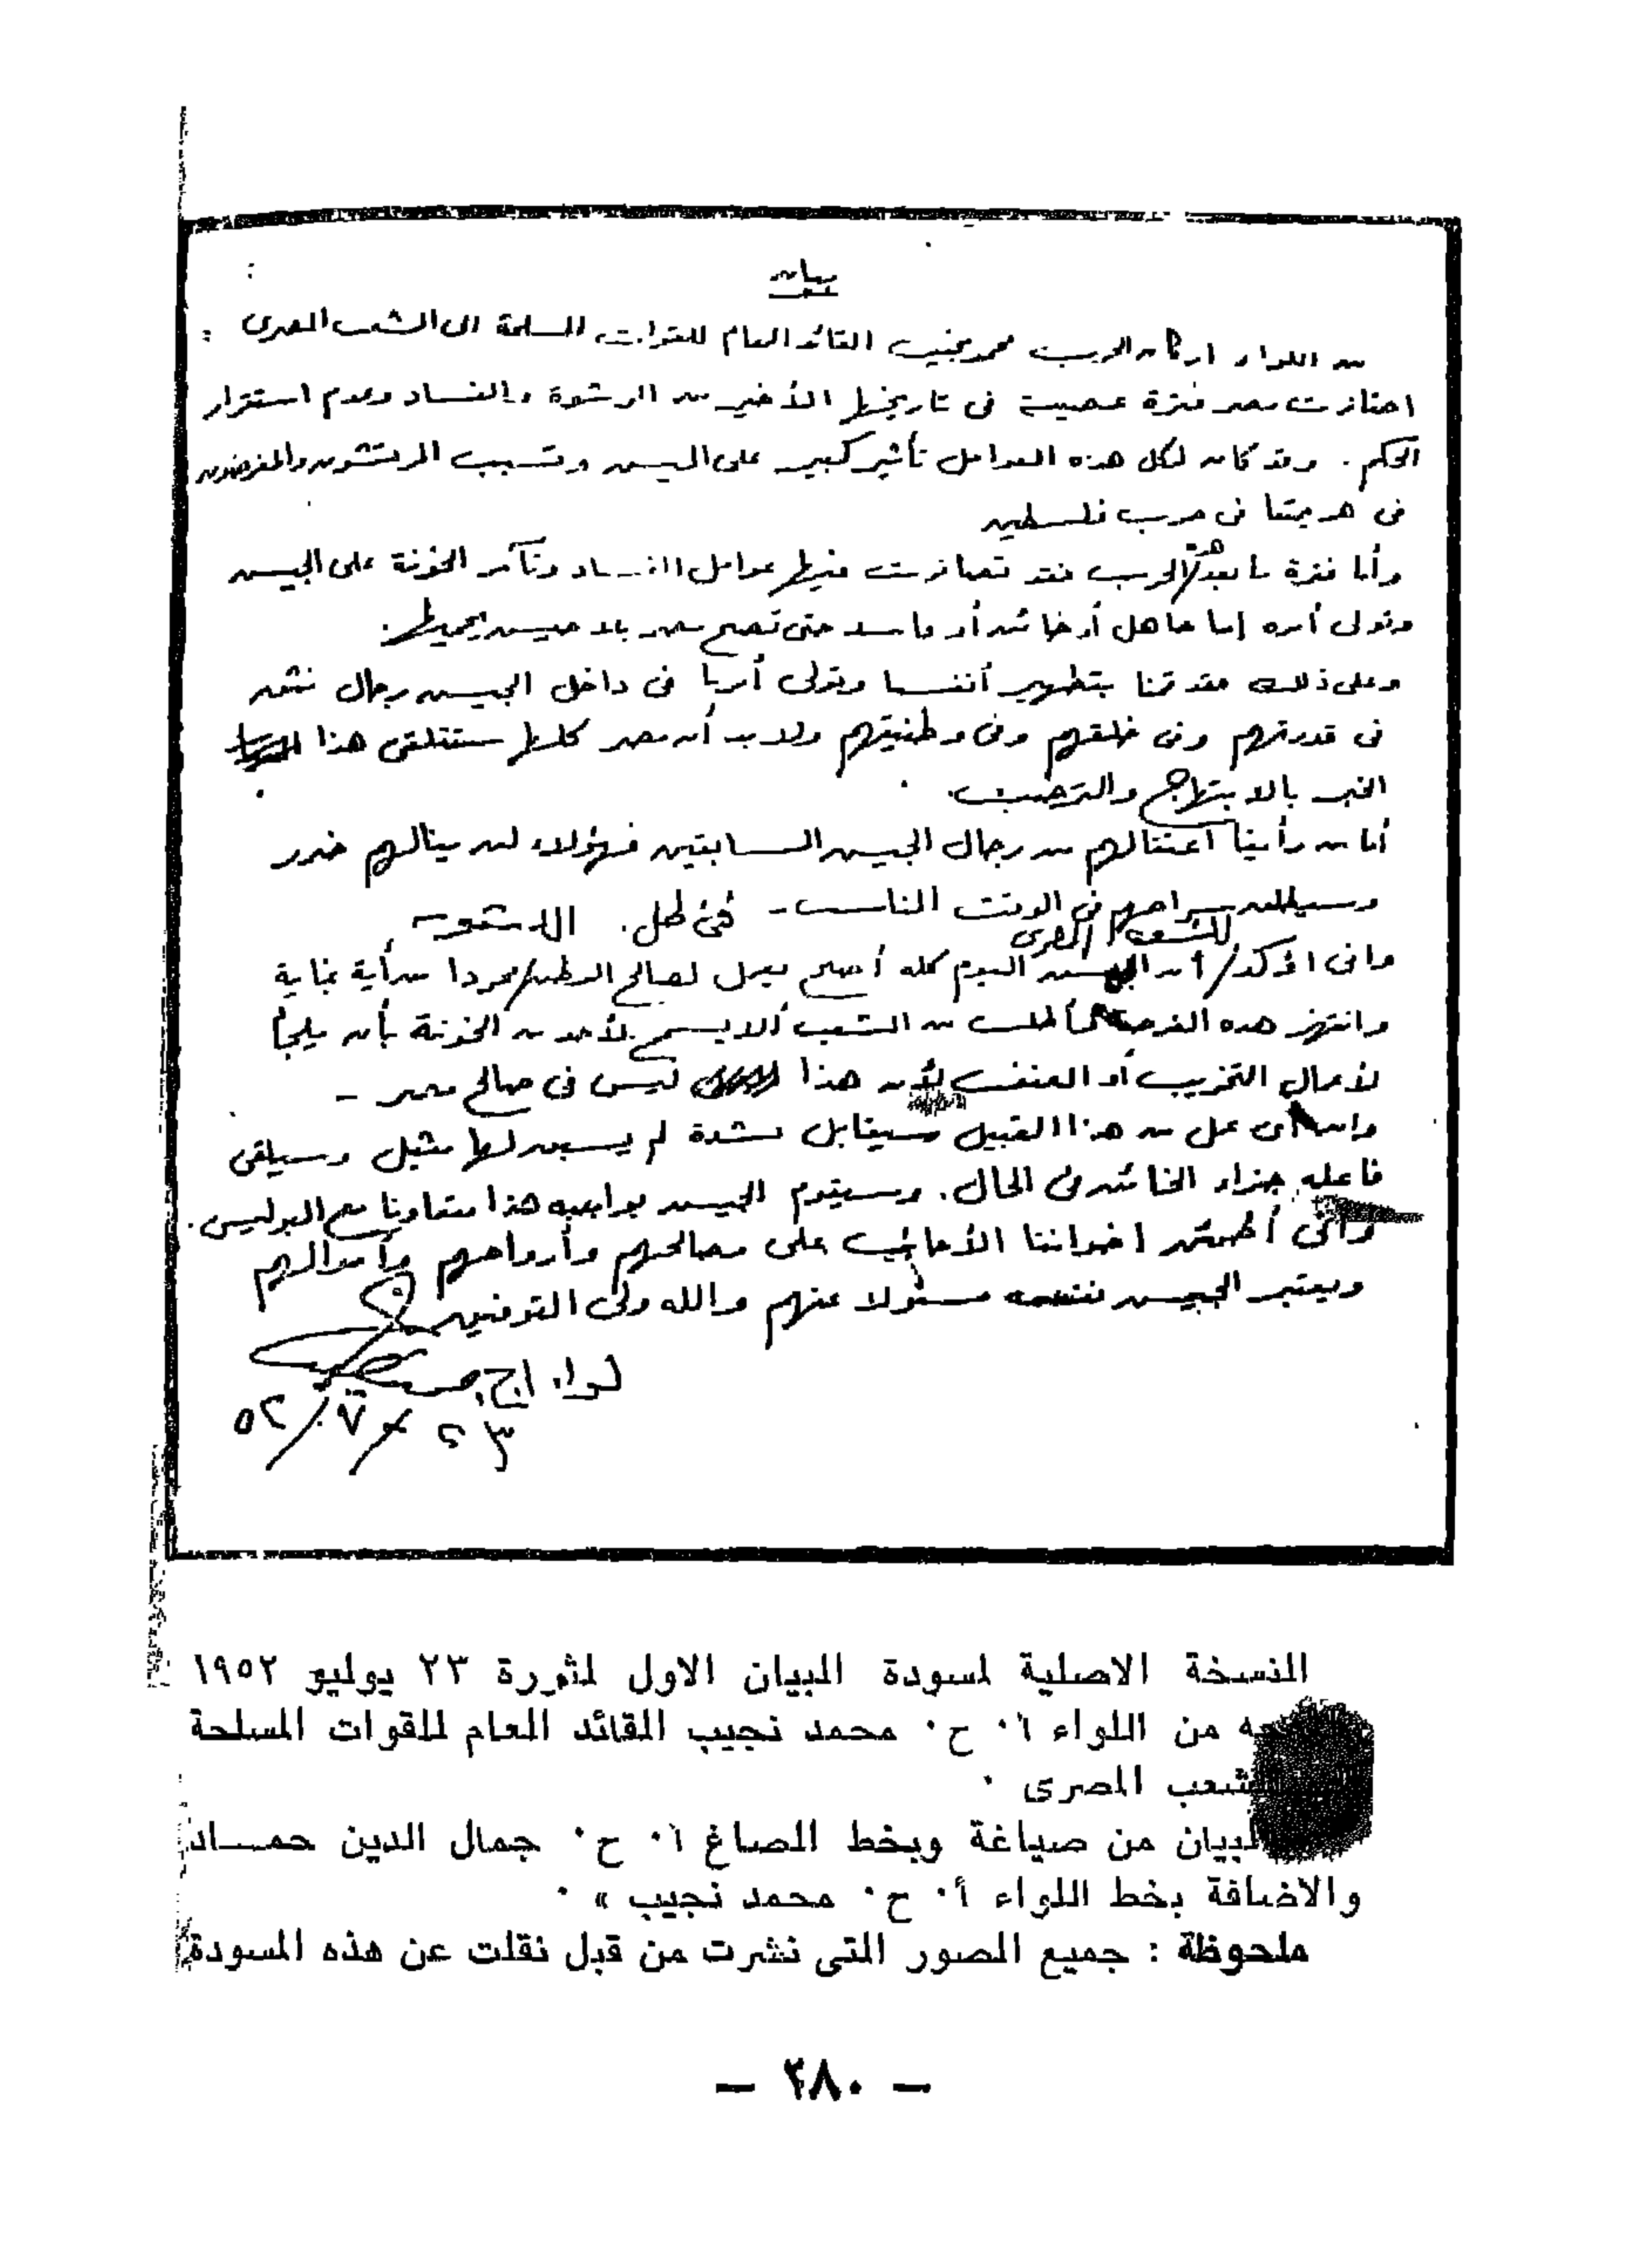 بيان
من اللواء اركان الحرب محمد نجيب القائد العام للقوات المسلحة الى الشعب المصرى :
اجتازت مصر فترة عصيبة فى تاريخها الأخير من الرشوة والفساد وعدم استقرار
الحكم . وقد كان لكل هذه العوامل تأثير كبير على الجيش وتسبب المرتشون والمغرضون
فى هزيمتنا فى حرب فلسطين
وأما فترة ما بعد هذه الحرب فقد تضافرت فيها عوامل الفساد وتآمر الخونة على الجيش
وتولى أمره إما جاهل أو خائن أو فاسد حتى تصبح مصر بلا جيش يحميها .
وعلى ذلك فقد قمنا بتطهير أنفسنا وتولى أمرنا فى داخل الجيش رجال نثق
فى قدرتهم وفى خلقهم وفى وطنيتهم ولابد أن مصر كلها ستتلقى هذا
الخبر بالابتهاج والترحيب .
أما من رأينا اعتقالهم من رجال الجيش السابقين فهؤلاء لن ينالهم ضرر
وسيطلق سراحهم فى الوقت المناسب -
وانى اؤكد للشعب المصرى أن الجيش اليوم كله أصبح يعمل لصالح الوطن فى ظل الدستور مجردا من أية غاية
وانتهز هذه الفرصة فأطلب من الشعب ألا يسمح لأحد من الخونة بأن يلجأ
لأعمال التخريب أو العنف لأن هذا ليس فى صالح مصر -
وان أى عمل من هذا القبيل سيقابل بشدة لم يسبق لها مثيل وسيلقى
فاعله جزاء الخائن فى الحال . وسيقوم الجيش بواجبه هذا متعاونا مع البوليس .
وانى أطمئن اخواننا الأجانب على مصالحهم وأرواحهم وأموالهم
ويعتبر الجيش نفسه مسئولا عنهم والله ولى التوفيق
لواء ا.ح.
٢٣ / ٧ / ٥٢
النسخة الاصلية لمسودة البيان الاول لثورة ٢٣ يوليو ١٩٥٢
من اللواء ا٠ ح٠ محمد نجيب القائد العام للقوات المسلحة
شعب المصرى ٠
لبيان من صياغة وبخط الصاغ ا٠ ح٠ جمال الدين حمــاد
والاضافة بخط اللواء أ٠ ح٠ محمد نجيب » ٠
ملحوظة : جميع الصور التى نشرت من قبل نقلت عن هذه المسودة
— ٢٨٠ —